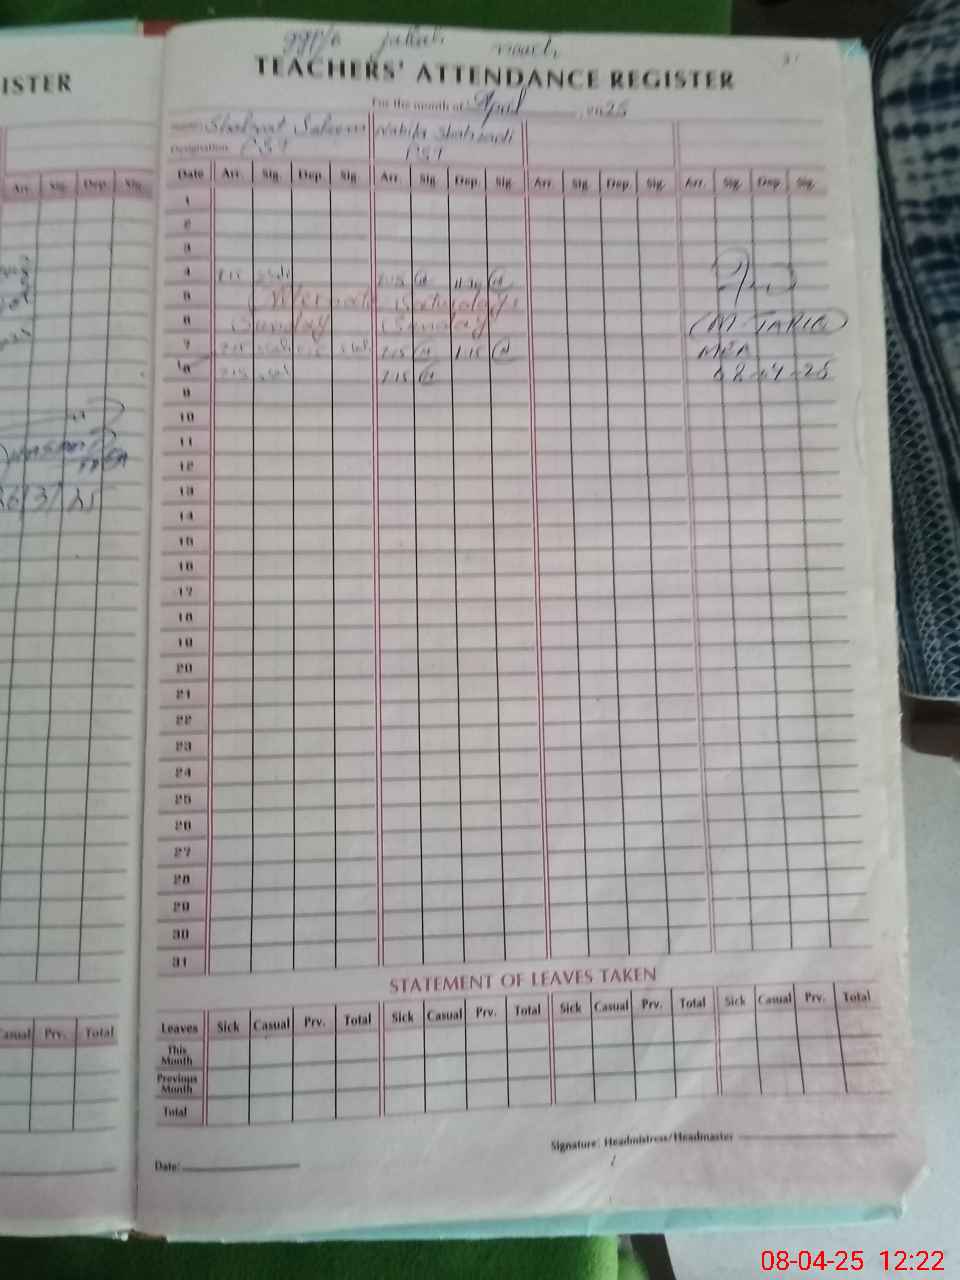 ISTER
TEACHERS' ATTENDANCE REGISTER
For the month of April, 2025
Name: Saleem Shahzadi
Designation PST PST
Arr. Sig. Dep. Sig.
Date Arr. Sig. Dep. Sig. Arr. Sig. Dep. Sig. Arr. Sig. Dep. Sig. Arr. Sig. Dep. Sig.
1
2
3
4 7:15 7:15
5 Alternate Saturday
6 Sunday Sunday (M TARIQ)
7 7:15 7:15 1:15 MEA
8 7:15 7:15 08-04-25
9
10
11
12
13
14
15
16
17
18
19
20
21
22
23
24
25
26
27
28
29
30
31
26/3/25
STATEMENT OF LEAVES TAKEN
Casual Prv. Total
Leaves Sick Casual Prv. Total Sick Casual Prv. Total Sick Casual Prv. Total Sick Casual Prv. Total
This Month
Previous Month
Total
Signature: Headmistress/Headmaster
Date:
08-04-25 12:22